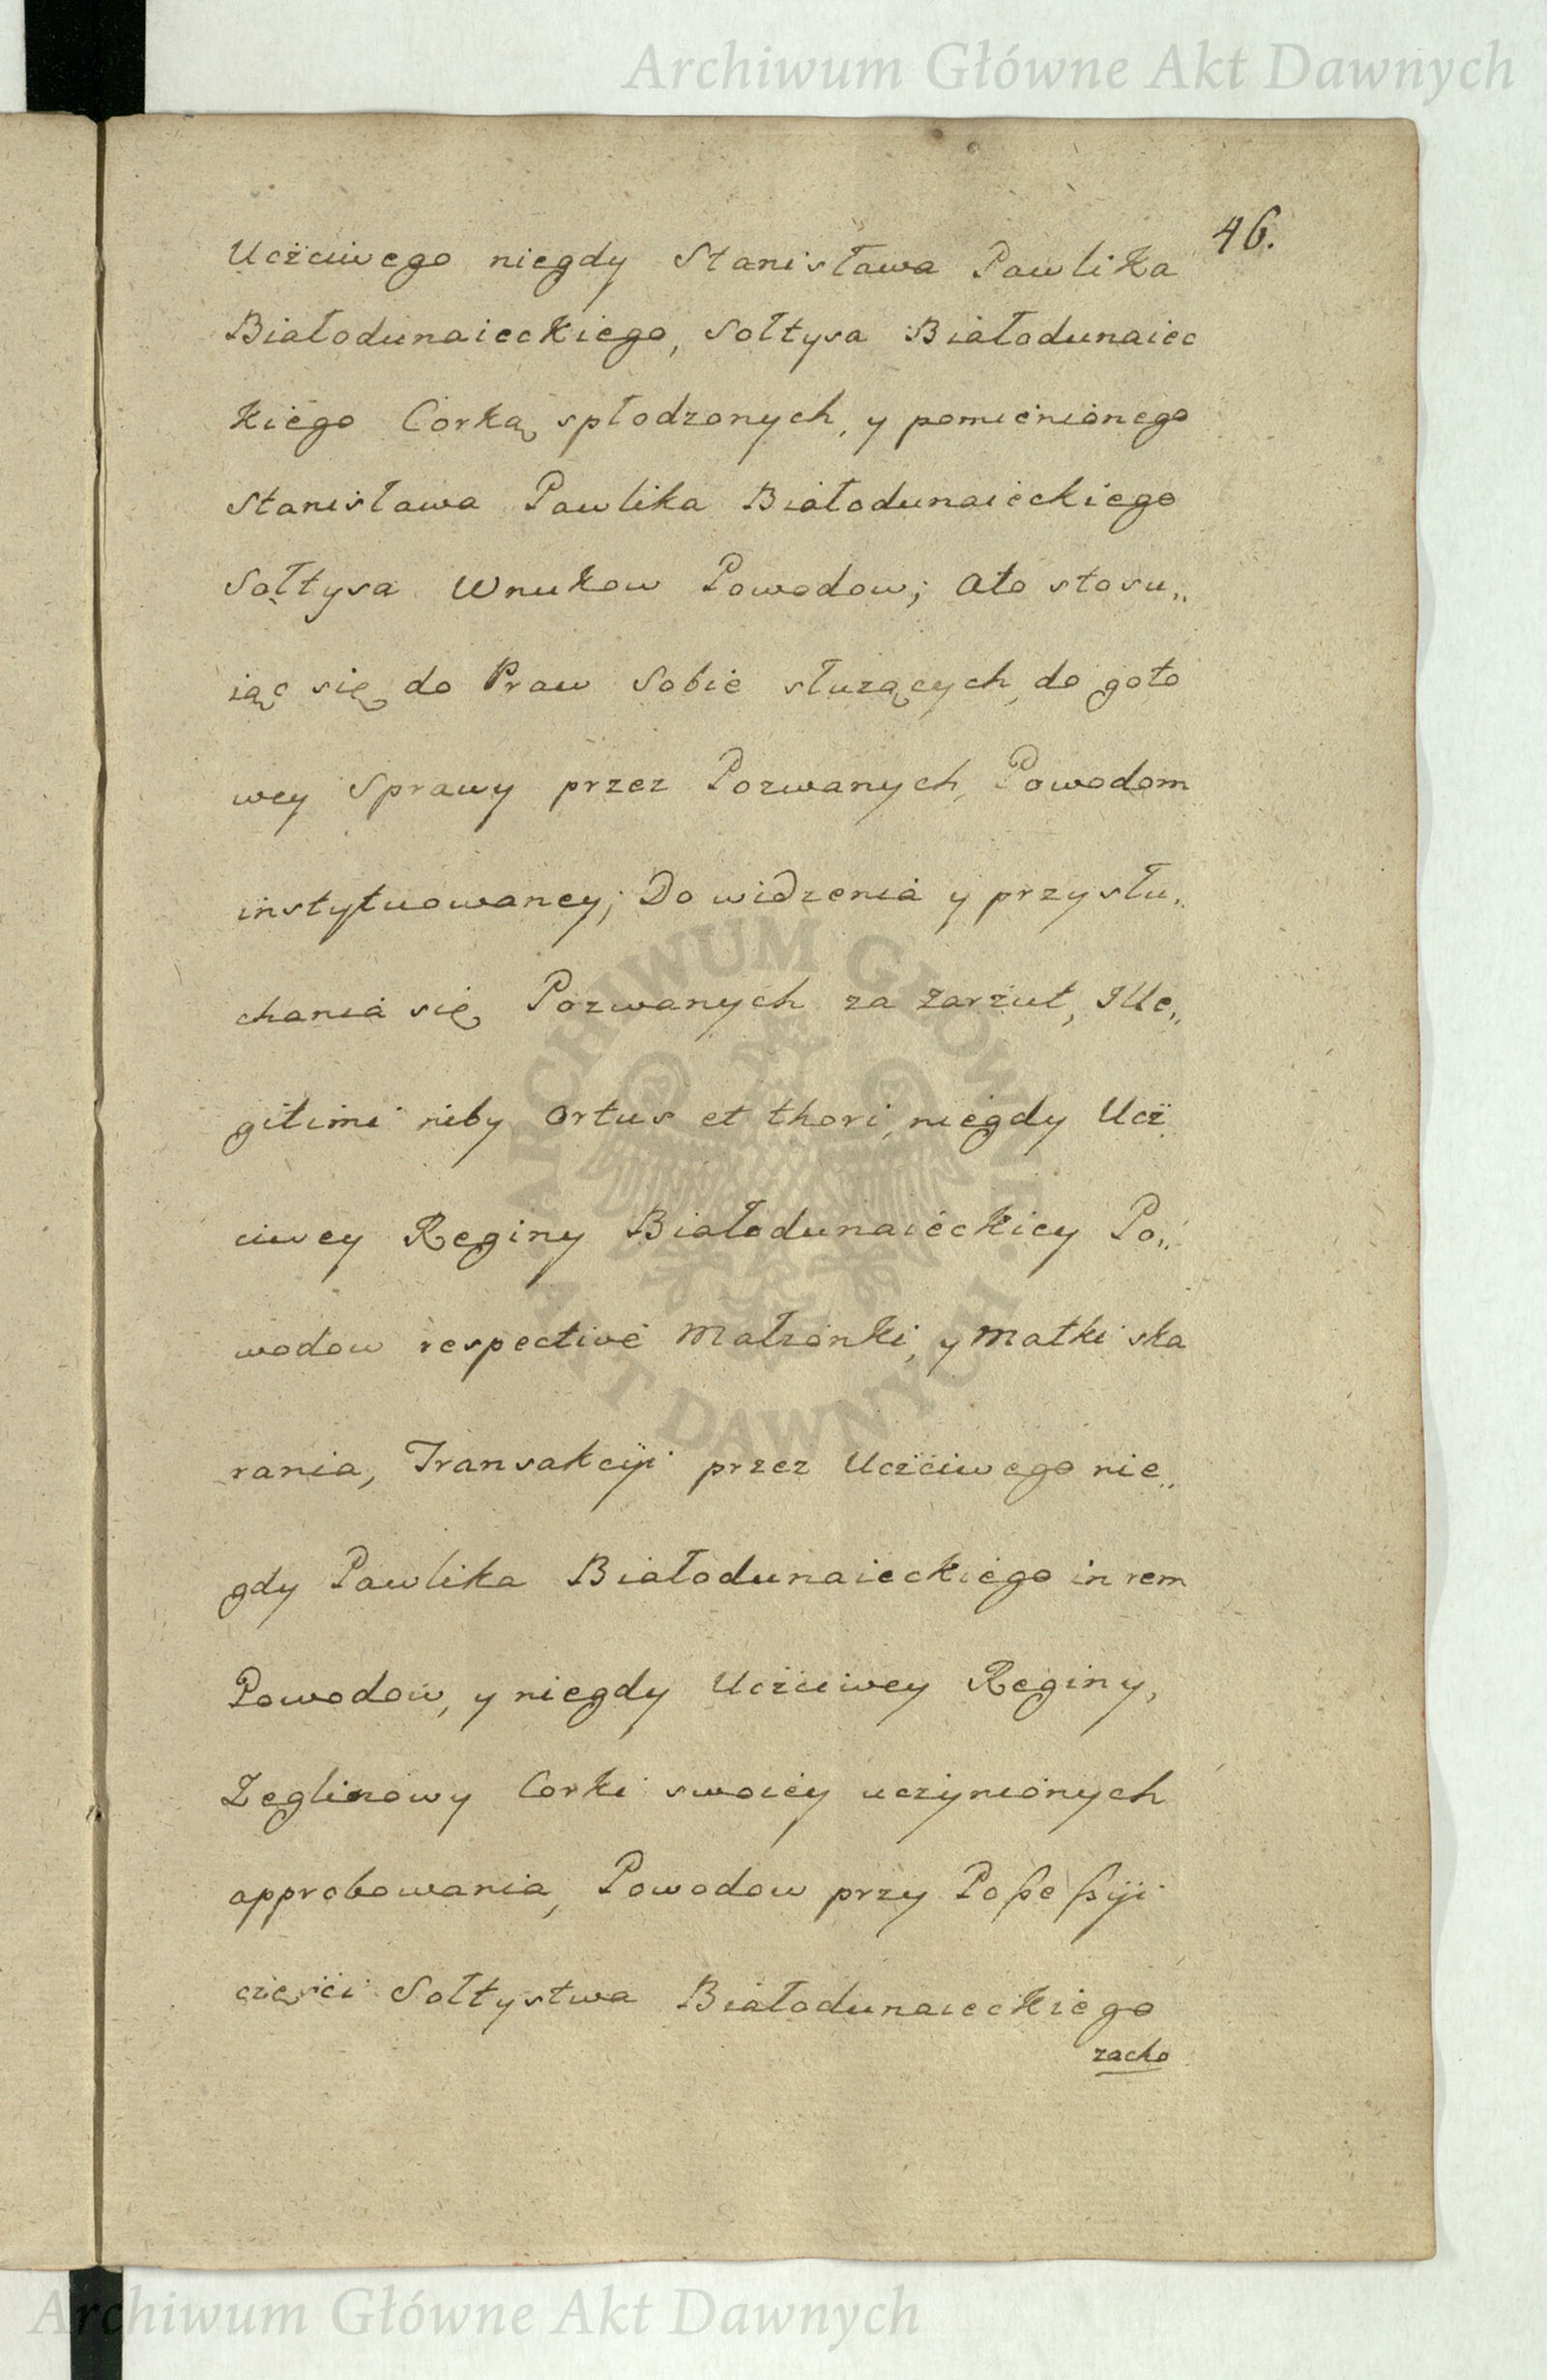 Archiwum Główne Akt Dawnych
46.
Uczciwego niegdy Stanisława Pawlika
Białodunaieckiego, Sołtysa Białodunaiec
kiego Corką spłodzonych, y pomienionego
Stanisława Pawlika Białodunaieckiego
Sołtysa Wnukow Powodow; Ato stosu„
iąc się do Praw Sobie słuzących, do goto
wey Sprawy przez Pozwanych, Powodom
instytuowaney; Do widzenia y przysłu„
chania się, Pozwanych za zarzut, Ille„
gitimi niby Ortus et thori, niegdy Ucz
ciwey Reginy Białodunaieckiey Po„
wodow respectivè Małzonki, y Matki ska
rania, Transakcÿi przez Uczciwego nie„
gdy Pawlika Białodunaieckiego in rem
Powodow, y niegdy Uczciwey Reginy,
Zeglinowy Corki swoiey uczynionych
approbowania, Powodow przy Poßeßÿi
częsci Sołtystwa Białodunaieckiego
zacho
ARCHIWUM GŁÓWNE AKT DAWNYCH
Archiwum Główne Akt Dawnych